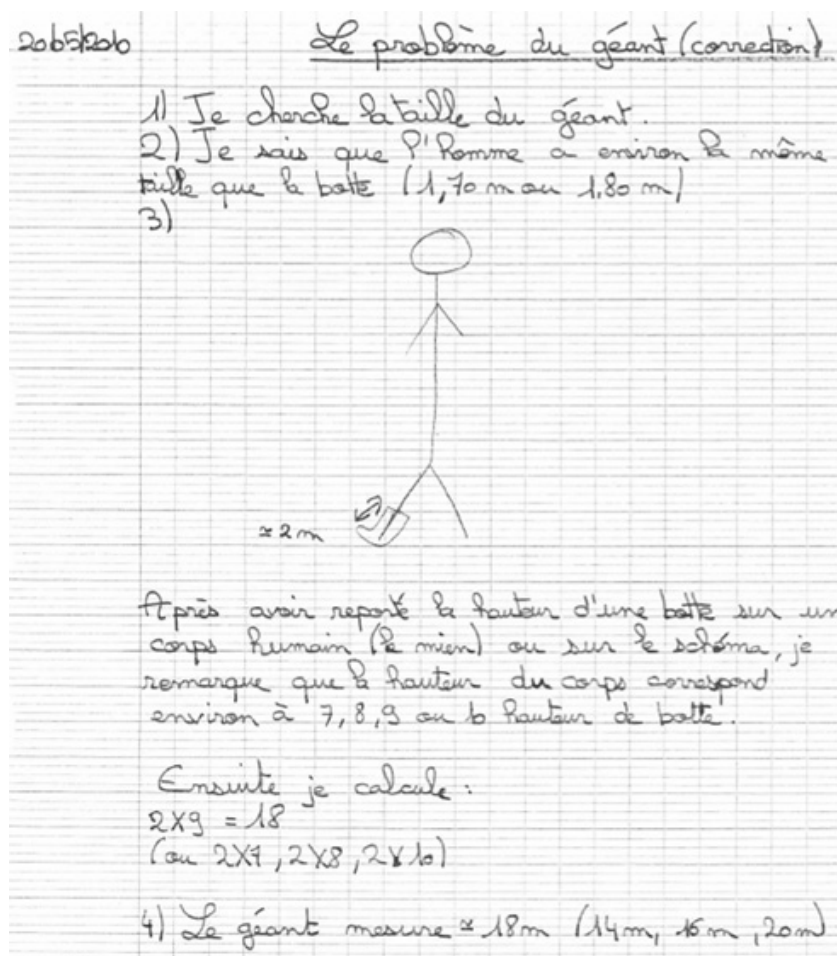 Le problème du géant (correction)
1) Je cherche la taille du géant.
2) Je sais que l'homme a environ la même
taille que la botte (1,70 m ou 1,80 m)
3)
≃ 2 m
Après avoir reporté la hauteur d'une botte sur un
corps humain (le mien) ou sur le schéma, je
remarque que la hauteur du corps correspond
environ à 7, 8, 9 ou 10 hauteur de botte.
Ensuite je calcule :
2x9 = 18
(ou 2x7, 2x8, 2x10)
4) Le géant mesure ≃ 18m (14m, 16m, 20m)